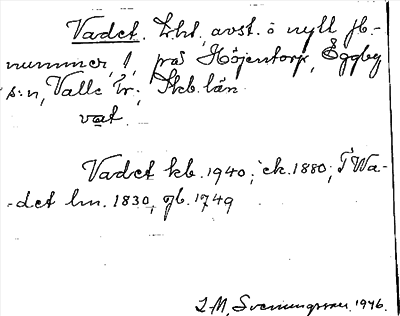 Vadet. Lht, avst. o nytt jb.-
nummer, 1, på Höjentorp, Eggby
s:n, Valle hr; Skb. län
vat.
Vadet kb. 1940; ck. 1880; I Wa-
-det lm. 1830, gb. 1749
I M, Sveningsson, 1946.